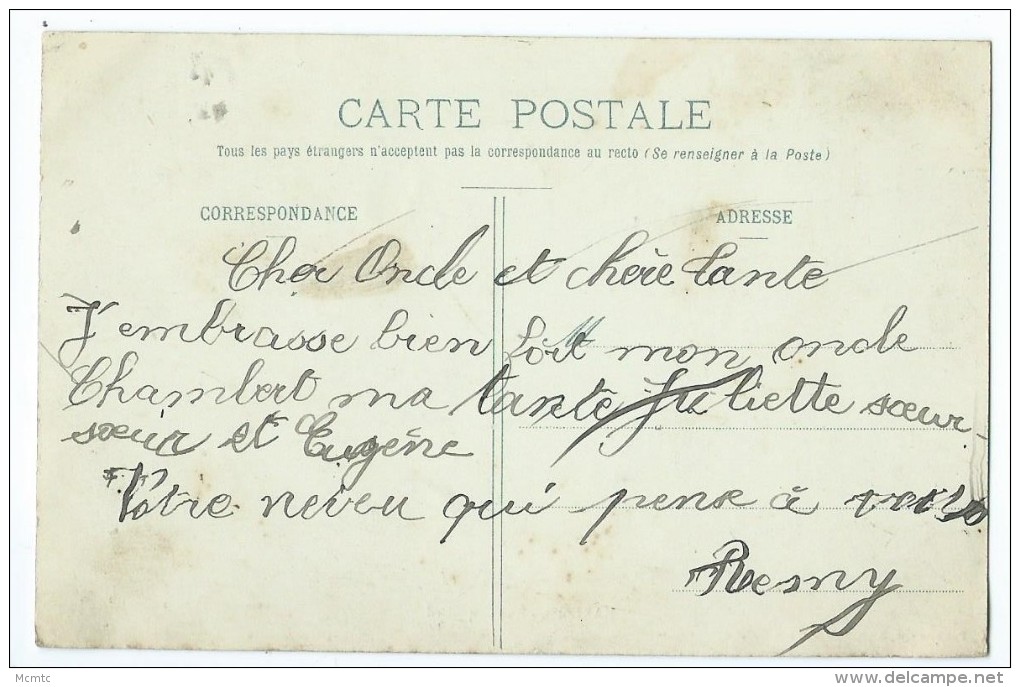 CARTE POSTALE
Tous les pays étrangers n'acceptent pas la correspondance au recto (Se renseigner à la Poste)
CORRESPONDANCE
ADRESSE
Cher Oncle et chère tante
J'embrasse bien fort mon oncle
Chambert ma tante Juliette sœur
sœur et Eugène
Votre neveu qui pense à vous
Remy
M
Mcmtc
delcampe.net